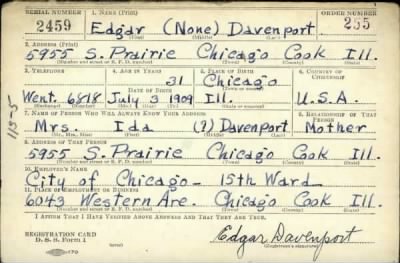 SERIAL NUMBER 1. NAME (Print) ORDER NUMBER
2459 Edgar (None) Davenport 255
(First) (Middle) (Last)
2. ADDRESS (Print)
5955 S. Prairie Chicago Cook Ill.
(Number and street or R. F. D. number) (Town) (County) (State)
3. TELEPHONE 4. AGE IN YEARS 5. PLACE OF BIRTH 6. COUNTRY OF CITIZENSHIP
31 Chicago
DATE OF BIRTH (Town or county)
Went. 6818 July 3 1909 Ill. U.S.A.
(Exchange) (Number) (Mo.) (Day) (Yr.) (State or country)
7. NAME OF PERSON WHO WILL ALWAYS KNOW YOUR ADDRESS 8. RELATIONSHIP OF THAT PERSON
Mrs. Ida (?) Davenport Mother
(Mr., Mrs., Miss) (First) (Middle) (Last)
9. ADDRESS OF THAT PERSON
5955 S. Prairie Chicago Cook Ill.
(Number and street or R. F. D. number) (Town) (County) (State)
10. EMPLOYER'S NAME
City of Chicago - 15th Ward
11. PLACE OF EMPLOYMENT OR BUSINESS
6043 Western Ave. Chicago Cook Ill.
(Number and street or R. F. D. number) (Town) (County) (State)
I AFFIRM THAT I HAVE VERIFIED ABOVE ANSWERS AND THAT THEY ARE TRUE.
REGISTRATION CARD
D. S. S. Form 1
Edgar Davenport